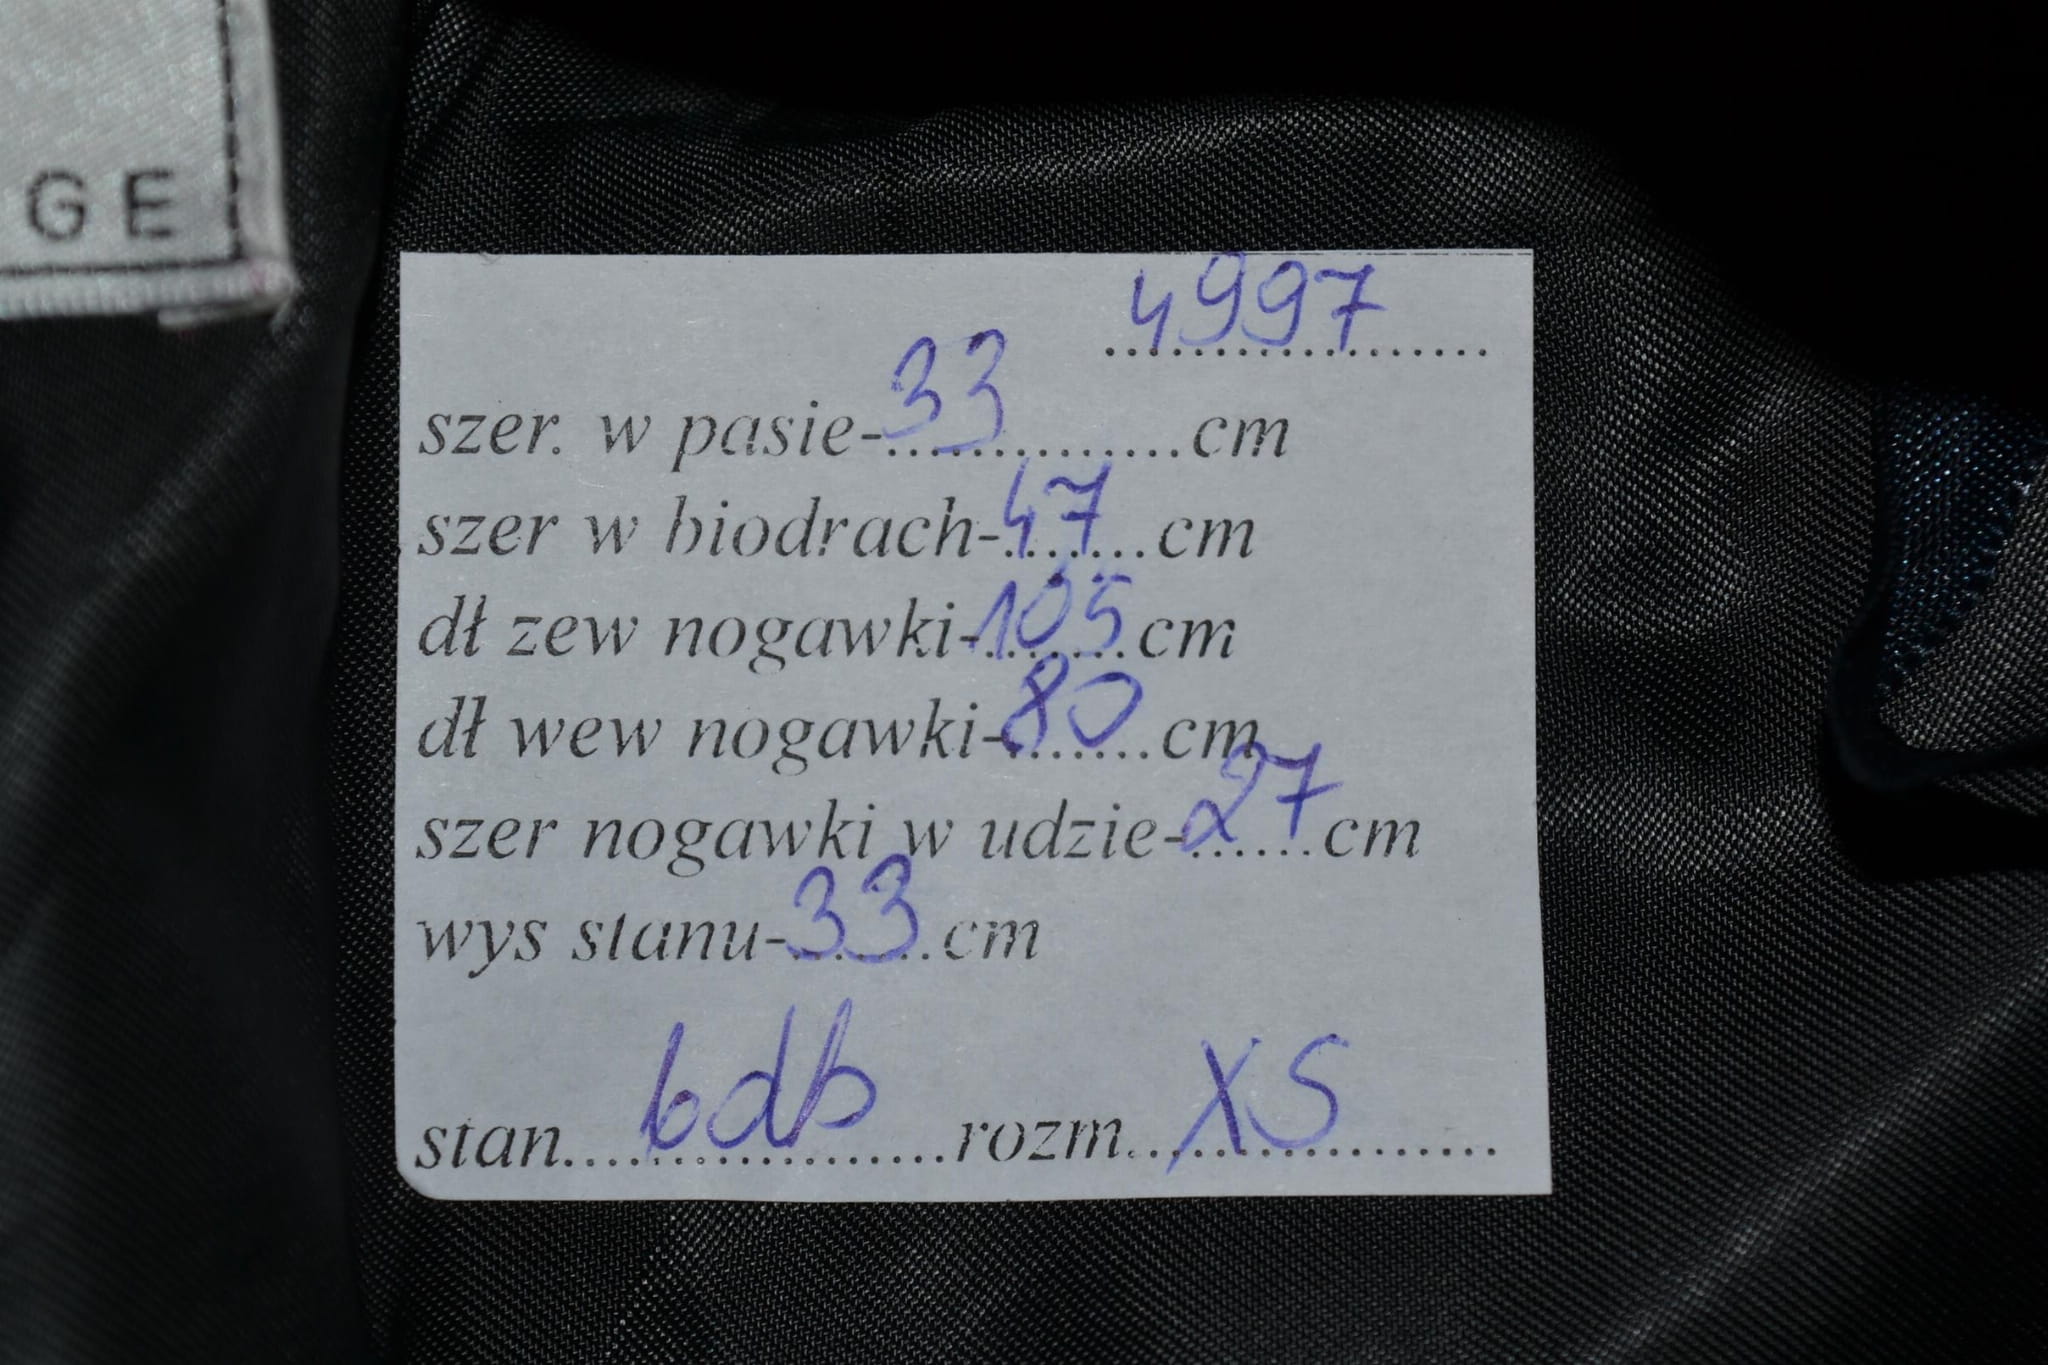 GE
4997
szer. w pasie-33cm
szer w biodrach-47cm
dł zew nogawki-105cm
dł wew nogawki-80cm
szer nogawki w udzie-27cm
wys stanu-33cm
stan bdb rozm. XS